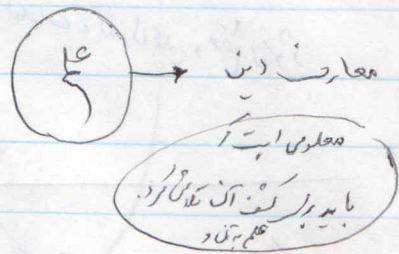 علم
معارف این
معلومی است
باید برای کشف آن تلاش کرد.
علم به آن و